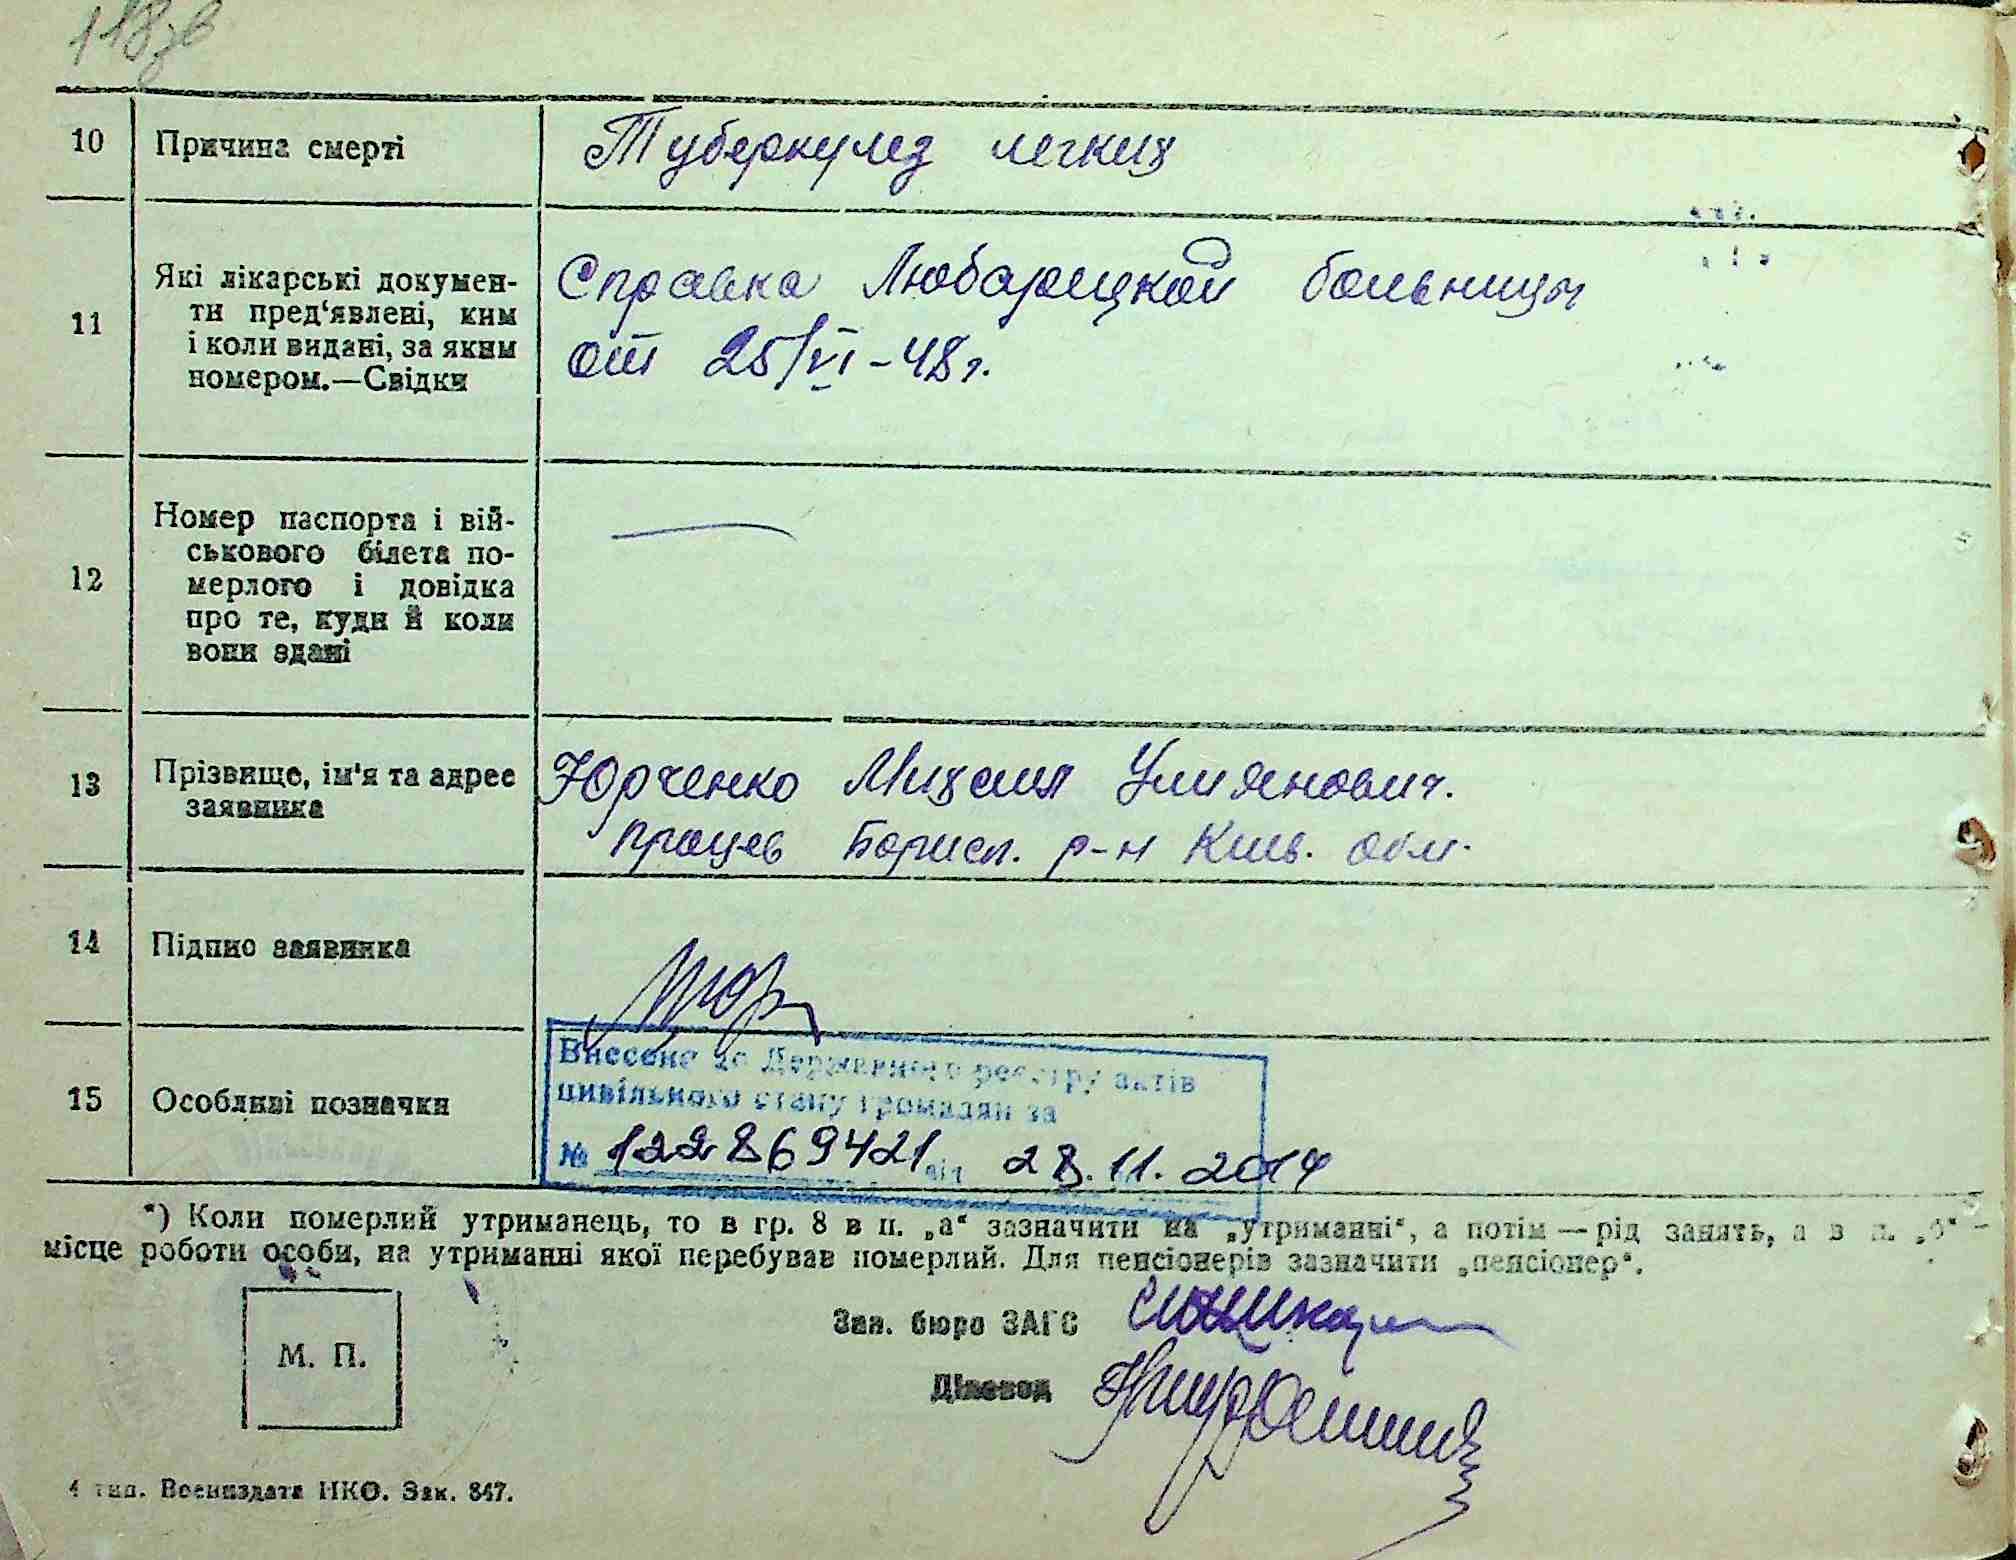 118зв
10 Причина смерті Туберкулез легких
11 Які лікарські докумен-
ти пред‘явлені, ким
і коли видані, за яким
номером.—Свідки
Справка Любарецкой больницы
от 25/VI-48г.
12 Номер паспорта і вій-
ськового білета по-
мерлого і довідка
про те, куди й коли
вони здані
13 Прізвище, ім'я та адрес
заявника
Юрченко Михаил Улиянович.
Процев Борисп. р-н Киев. обл.
14 Підпис заявника
15 Особливі позначки
Внесено до Державного реєстру актів
цивільного стану громадян за
№ 122869421 від 28.11.2014
*) Коли померлий утриманець, то в гр. 8 в п. „а“ зазначити на „утриманні“, а потім — рід занять, а в п. „б“ —
місце роботи особи, на утриманні якої перебував померлий. Для пенсіонерів зазначити „пенсіонер“.
Зав. бюро ЗАГС
М. П.
Діловод
4 тип. Воениздата НКО. Зак. 847.